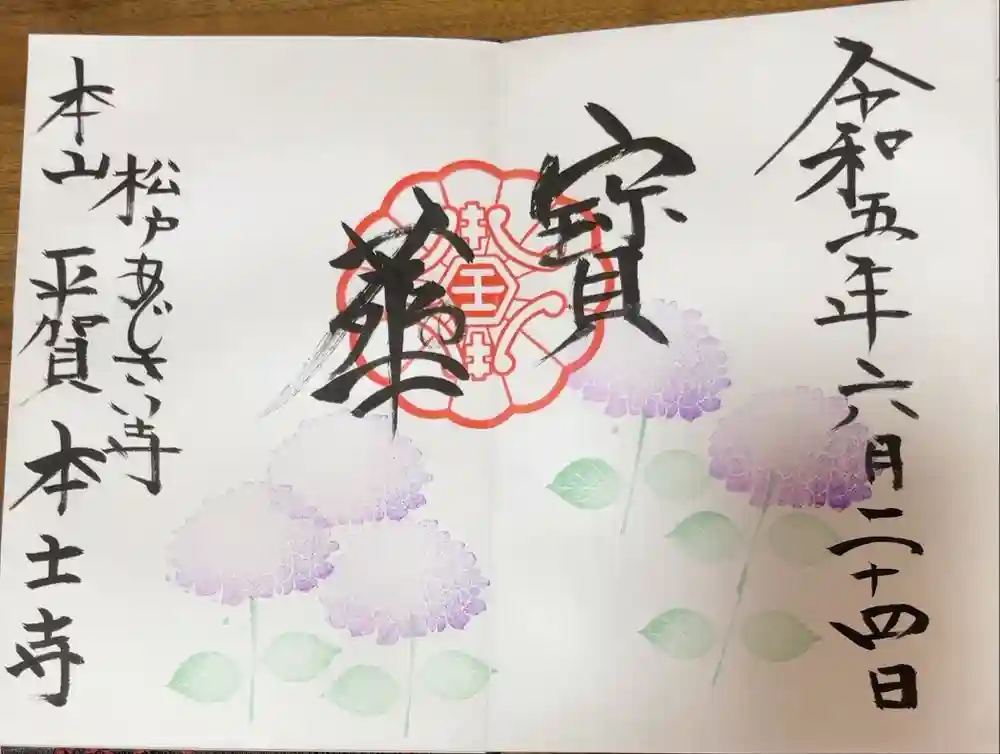 令和五年六月二十四日
寳
華
松戸あじさい寺
本山 平賀 本土寺